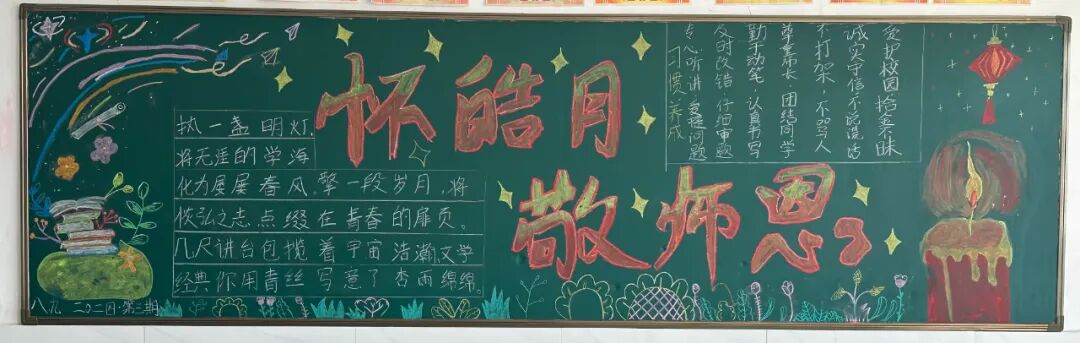 怀皓月
敬师恩
执一盏明灯,
将无涯的学海
化为屡屡春风,擎一段岁月,将
恢弘之志点缀在青春的扉页。
几尺讲台包揽着宇宙浩瀚,文学
经典你用青丝写意了杏雨绵绵。
爱护校园拾金不昧
诚实守信不说谎话
不打架,不骂人
尊重师长,团结同学
勤于动笔,认真书写
及时改错 仔细审题
专心听讲,爱提问题
习惯养成
八九 二〇二四·第三期